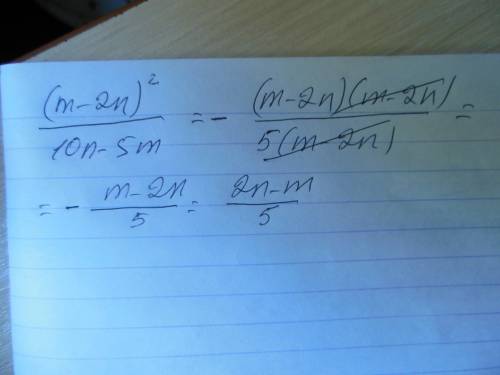 (m-2n)² / 10n-5m = - (m-2n)(m-2n) / 5(m-2n) =
= - m-2n / 5 = 2n-m / 5